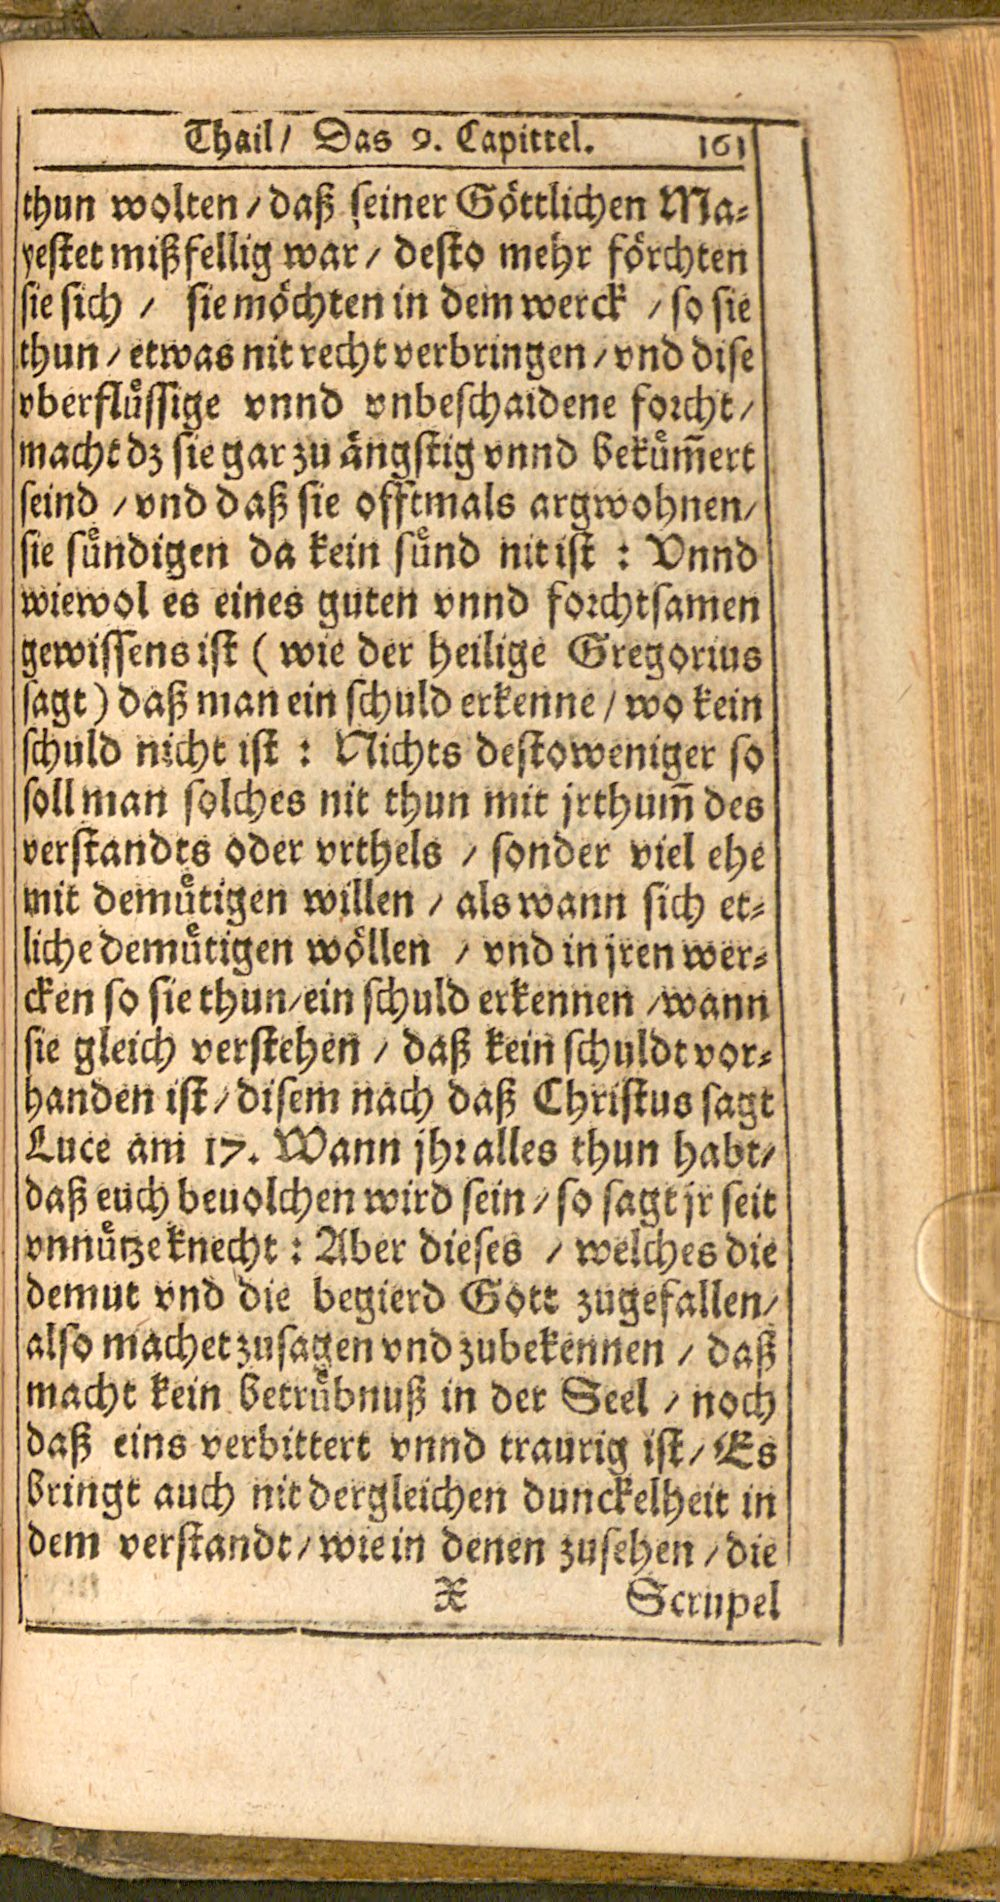 Thail/ Das 9. Capittel. 161
thun wolten/ daß seiner Göttlichen Ma-
yestet mißfellig war/ desto mehr förchten
sie sich / sie möchten in dem werck / so sie
thun/ etwas nit recht verbringen/ vnd dise
vberflüssige vnnd vnbeschaidene forcht/
macht dz sie gar zu ängstig vnnd bekům̃ert
seind / vnd daß sie offtmals argwohnen/
sie sündigen da kein sünd nit ist : Vnnd
wiewol es eines guten vnnd forchtsamen
gewissens ist ( wie der heilige Gregorius
sagt) daß man ein schuld erkenne / wo kein
schuld nicht ist : Nichts destoweniger so
soll man solches nit thun mit jrthum̃ des
verstandts oder vrthels / sonder viel ehe
mit demütigen willen / als wann sich et-
liche demütigen wöllen / vnd in jren wer-
cken so sie thun/ ein schuld erkennen /wann
sie gleich verstehen / daß kein schuldt vor-
handen ist/ disem nach daß Christus sagt
Luce am 17. Wann jhr alles thun habt/
daß euch beuolchen wird sein/ so sagt jr seit
vnnütze knecht : Aber dieses / welches die
demut vnd die begierd Gott zugefallen/
also machet zusagen vnd zubekennen / daß
macht kein betrübnuß in der Seel / noch
daß eins verbittert vnnd traurig ist/ Es
bringt auch nit dergleichen dunckelheit in
dem verstandt/ wie in denen zusehen / die
X Scrupel